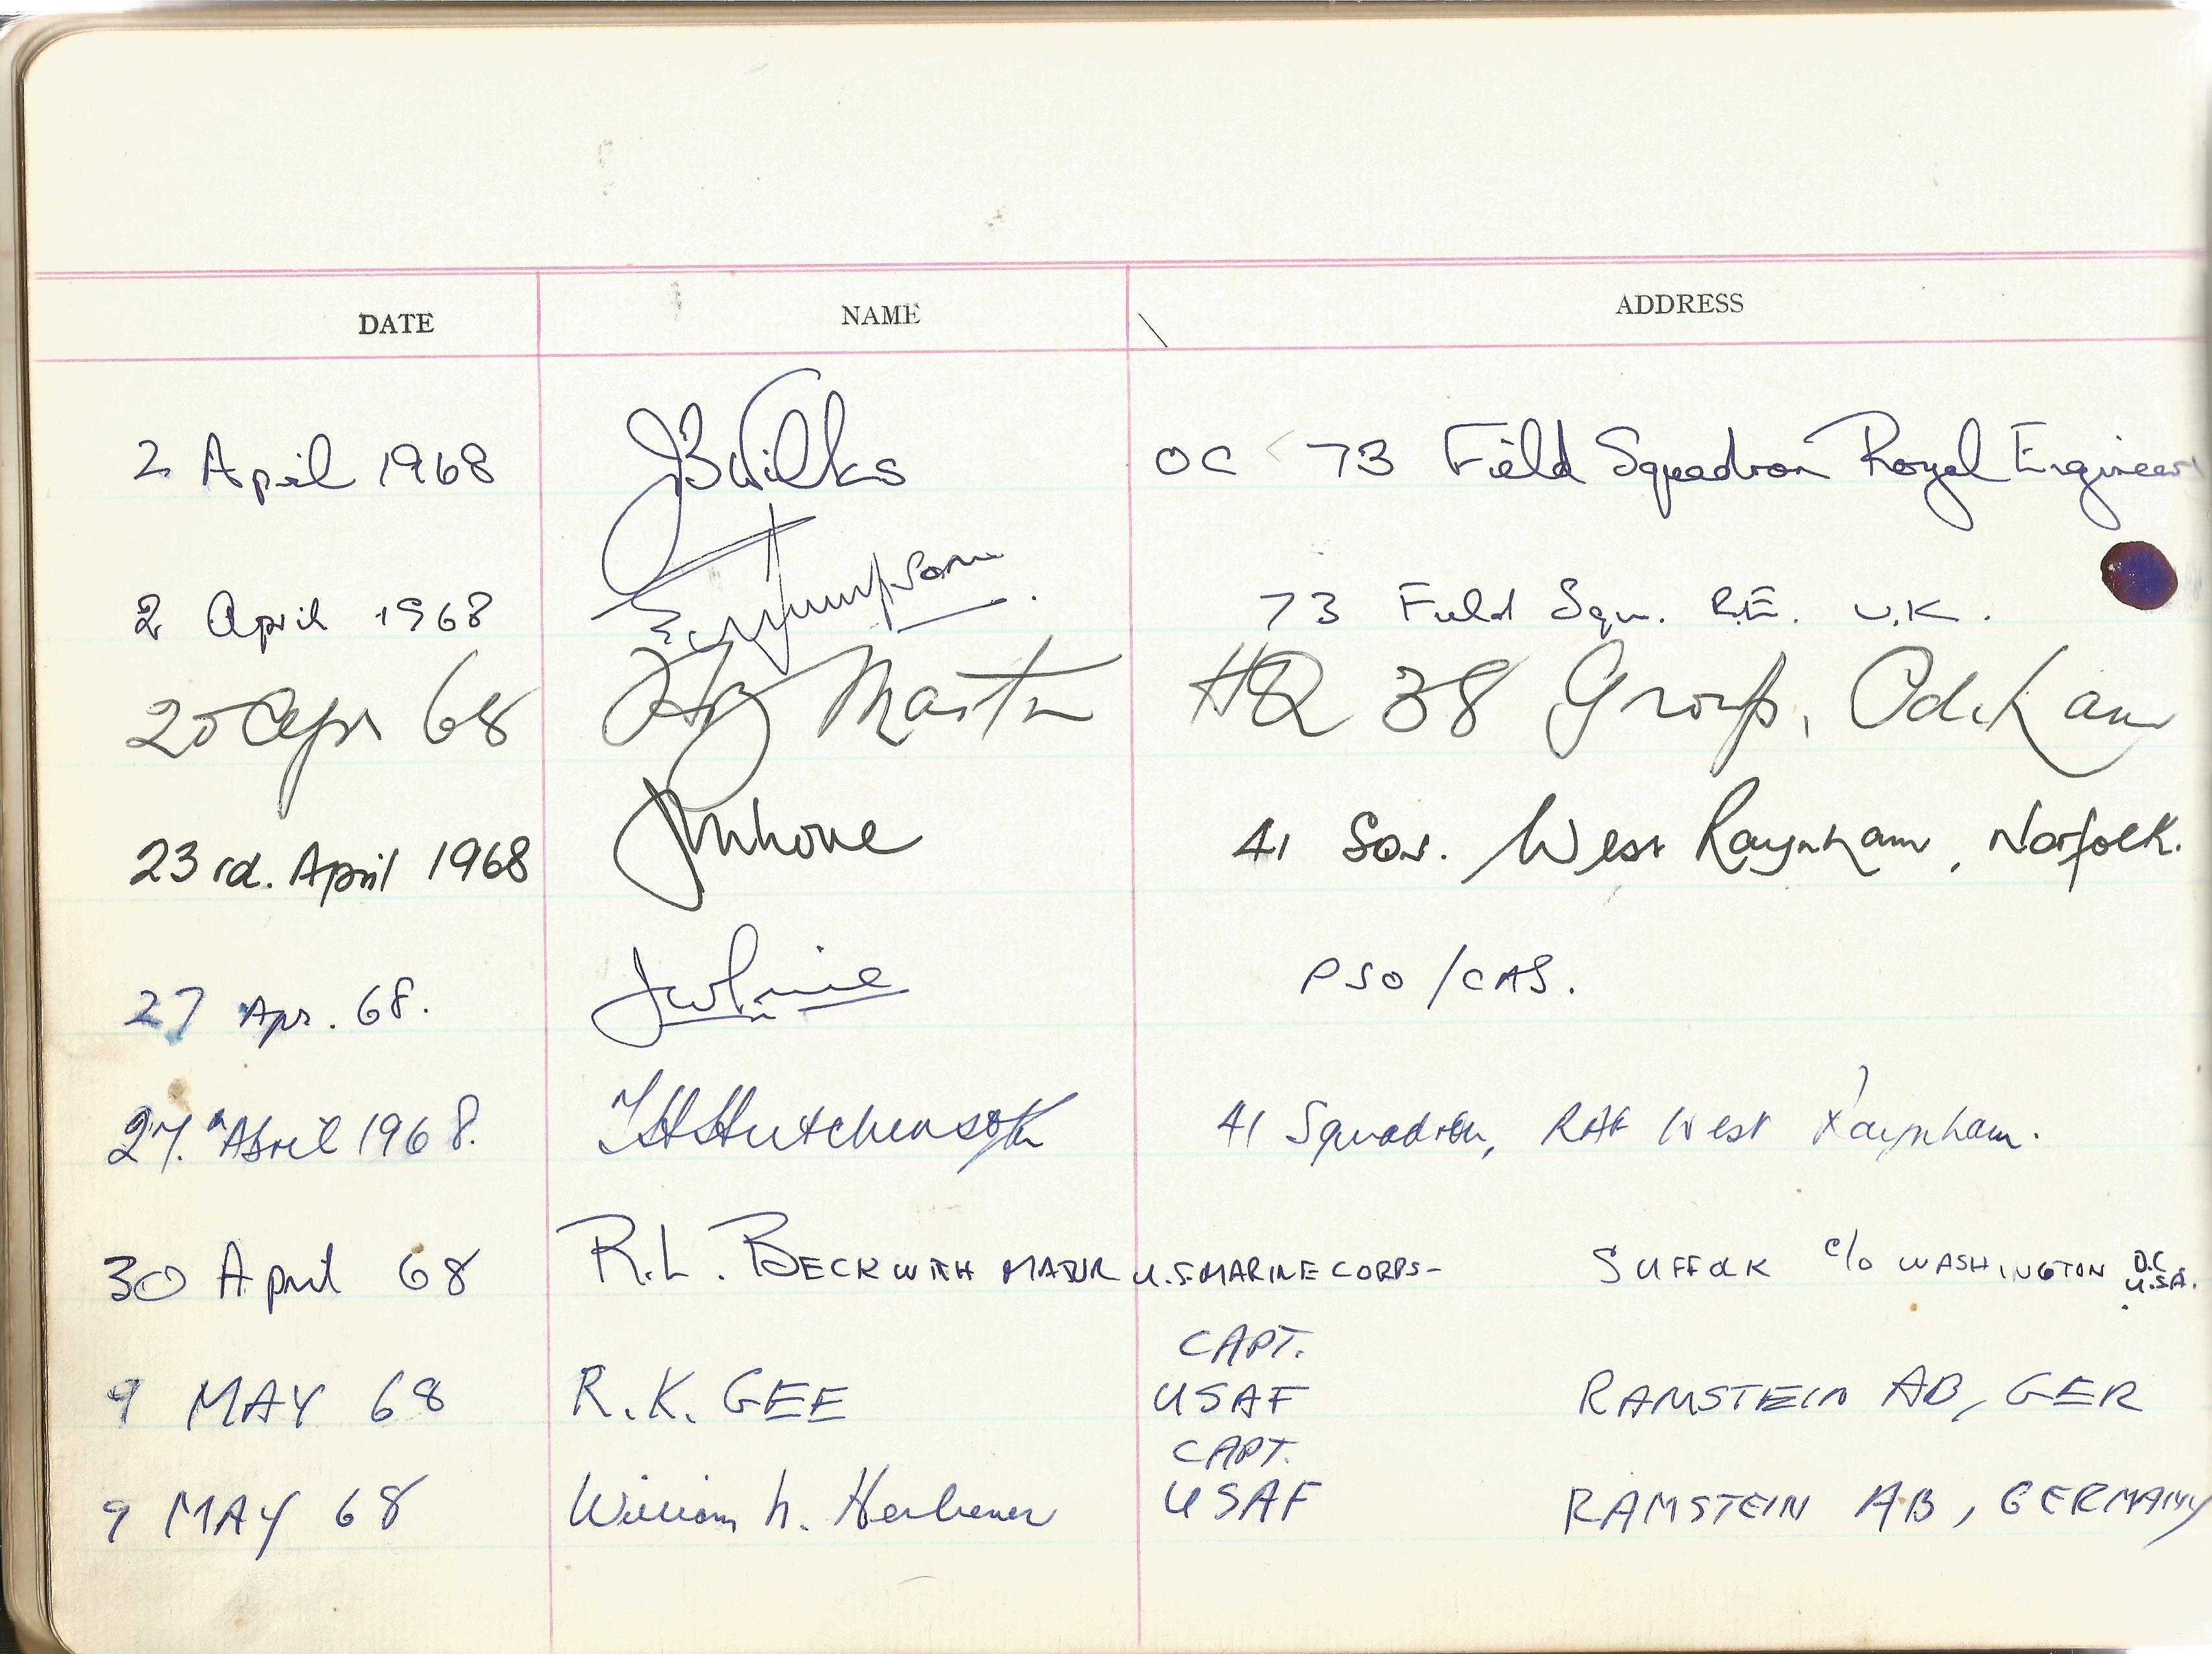 DATE NAME ADDRESS
2 April 1968 JBWilks OC 73 Field Squadron Royal Engineers
2 April 1968 73 Field Sqn. R.E. U.K.
20 Apr 68 Martin HQ 38 Group, Odiham
23rd. April 1968 41 Sqn. West Raynham, Norfolk.
27 Apr. 68. PSO/CAS.
27. April 1968. Hutchinson 41 Squadron, RAF West Raynham.
30 April 68 R.L. BECKWITH MAJOR U.S. MARINE CORPS- SUFFOLK c/o WASHINGTON D.C. U.S.A.
CAPT.
9 MAY 68 R.K. GEE USAF RAMSTEIN AB, GER
CAPT.
9 MAY 68 William H. Herbener USAF RAMSTEIN AB, GERMANY